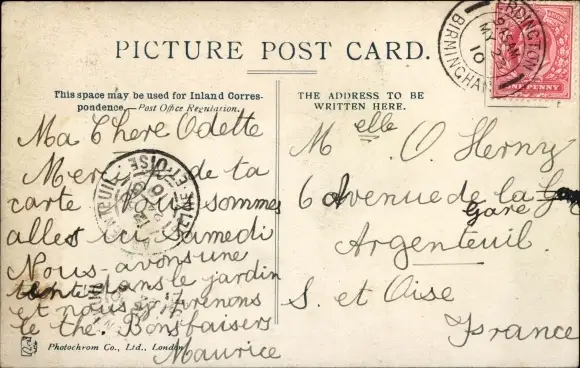 PICTURE POST CARD.
This space may be used for Inland Corres-
pondence.—Post Office Regulation.
THE ADDRESS TO BE
WRITTEN HERE.
Ma Chere Odette
Merci de ta
carte Nous sommes
alles ici samedi
Nous avons une
tente dans le jardin
et nous y prenons
le thé. Bons baisers
Maurice
Melle O. Herny
6 Avenue de la
Gare
Argenteuil.
S. et Oise
France
ERDINGTON
BIRMINGHAM
MY 24
10
ONE PENNY
ET-OISE
Photochrom Co., Ltd., London